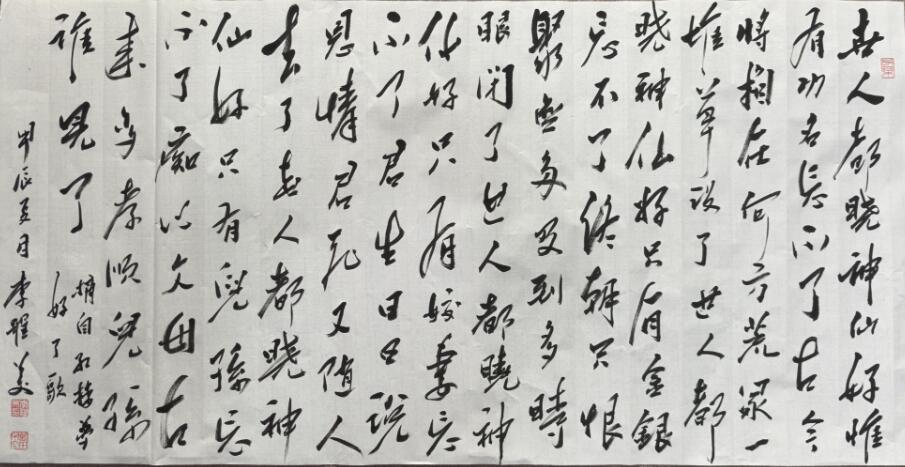 世人都晓神仙好惟
有功名忘不了古今
將相在何方荒冢一
堆草没了世人都
晓神仙好只有金銀
忘不了終朝只恨
聚無多及到多時
眼闭了世人都曉神
仙好只有姣妻忘
不了君生日日説
恩情君死又随人
去了世人都晓神
仙好只有兒孫忘
不了痴心父母古
来多孝顺兒孫
誰見了
摘自红楼夢
好了歌
甲辰五月 李 美